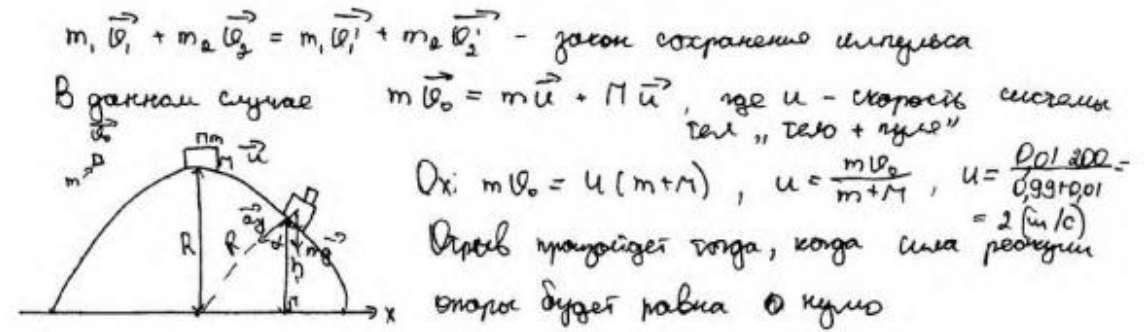 m₁v⃗₁ + m₂v⃗₂ = m₁v⃗₁' + m₂v⃗₂' - закон сохранение импульса
В данном случае mv⃗₀ = mu⃗ + Mu⃗, где u - скорость системы
тел „тело + пуля"
v⃗₀
m
m
M u⃗
R
R
a⃗y
α
h
mg⃗
x
Ox: mv₀ = u(m+M), u = mv₀/(m+M), u = 0,01 200/(0,99+0,01) =
= 2 (м/с)
Отрыв произойдет тогда, когда сила реакции
опоры будет равна нулю